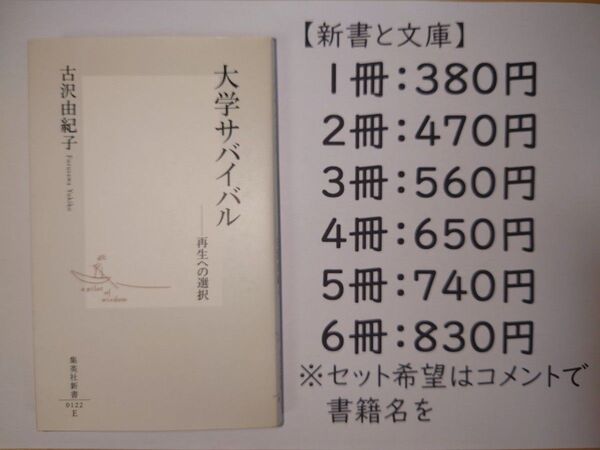 大学サバイバル
──再生への選択
古沢由紀子
Furusawa Yukiko
a pilot
of
wisdom
集英社新書
0122
E
【新書と文庫】
1冊：380円
2冊：470円
3冊：560円
4冊：650円
5冊：740円
6冊：830円
※セット希望はコメントで
書籍名を